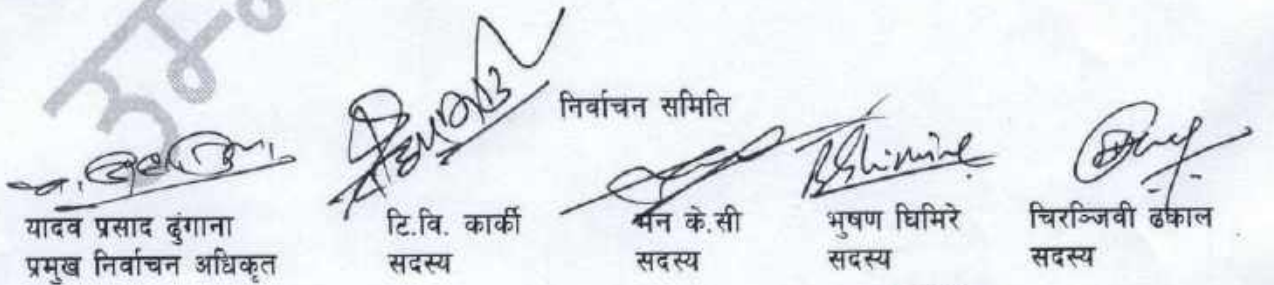 निर्वाचन समिति
यादव प्रसाद ढुंगाना
प्रमुख निर्वाचन अधिकृत
टि.वि. कार्की
सदस्य
मन के.सी
सदस्य
भुषण घिमिरे
सदस्य
चिरञ्जिवी ढकाल
सदस्य